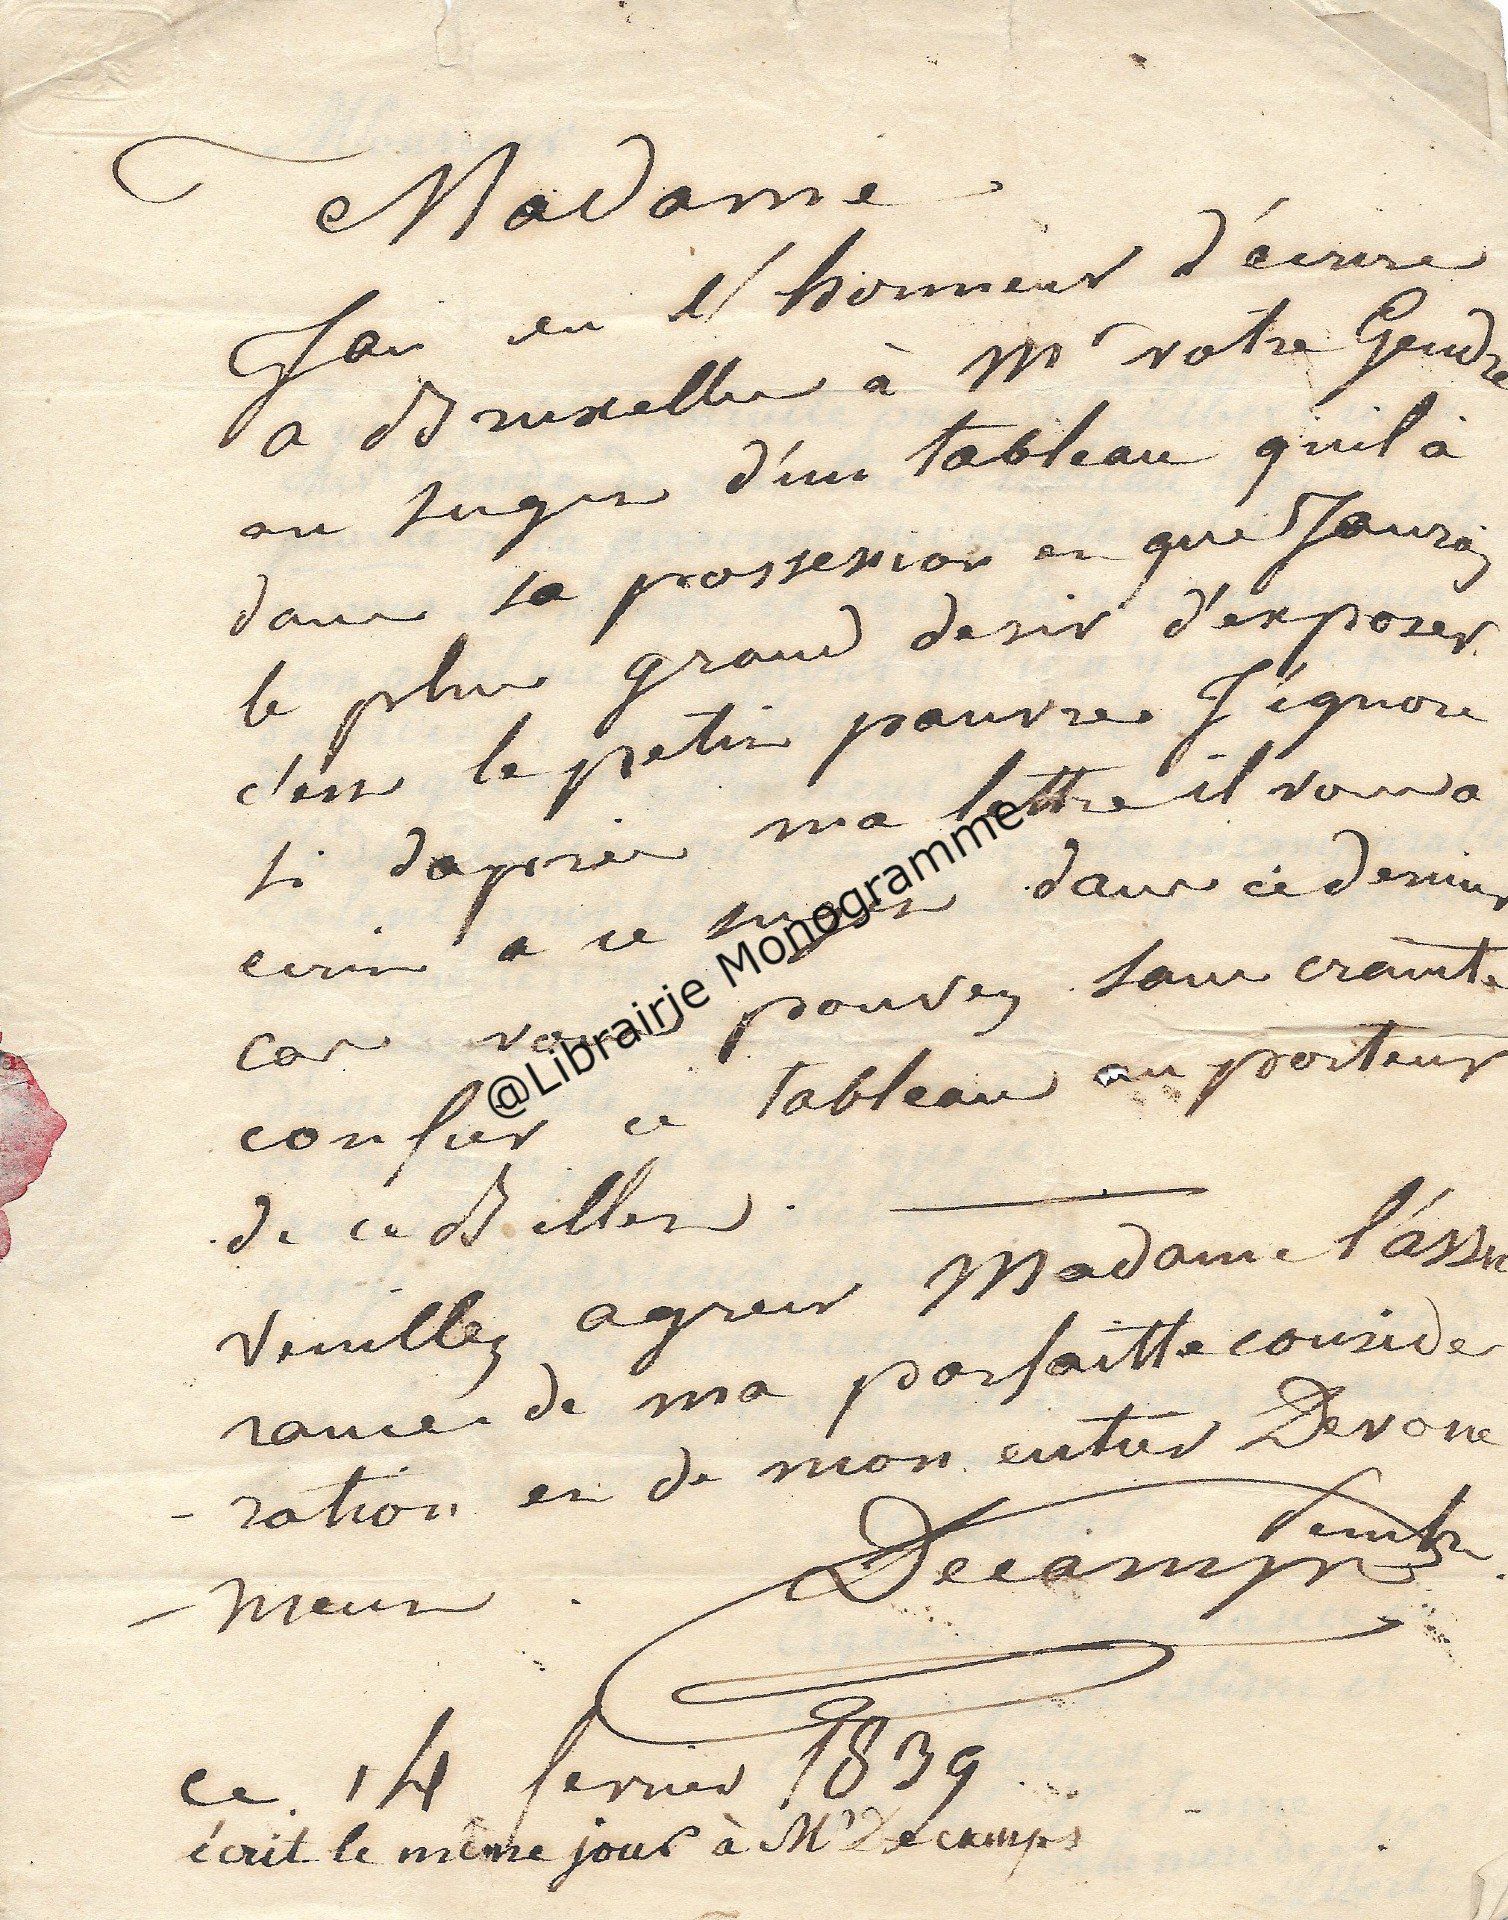 Madame
J'ai eu l'honneur d'écrire
a Bruxelles à Mr votre Gendre
au sujet d'un tableau qu'il à
dans sa possession et que J'aurois
le plus grand desir d'exposer
c'est le petit pauvre J'ignore
si daprès ma lettre il vous a
ecrit a ce sujet dans ce dernier
cas vous pouvez sans crainte
confier ce tableau au porteur
de ce Billet.
veuillez agreer Madame l'assu
rance de ma parfaitte conside
-ration et de mon entier Devoue
-ment.
Decamps
ce 14 fevrier 1839
écrit le même jour à Mr Decamps
@Librairie Monogramme